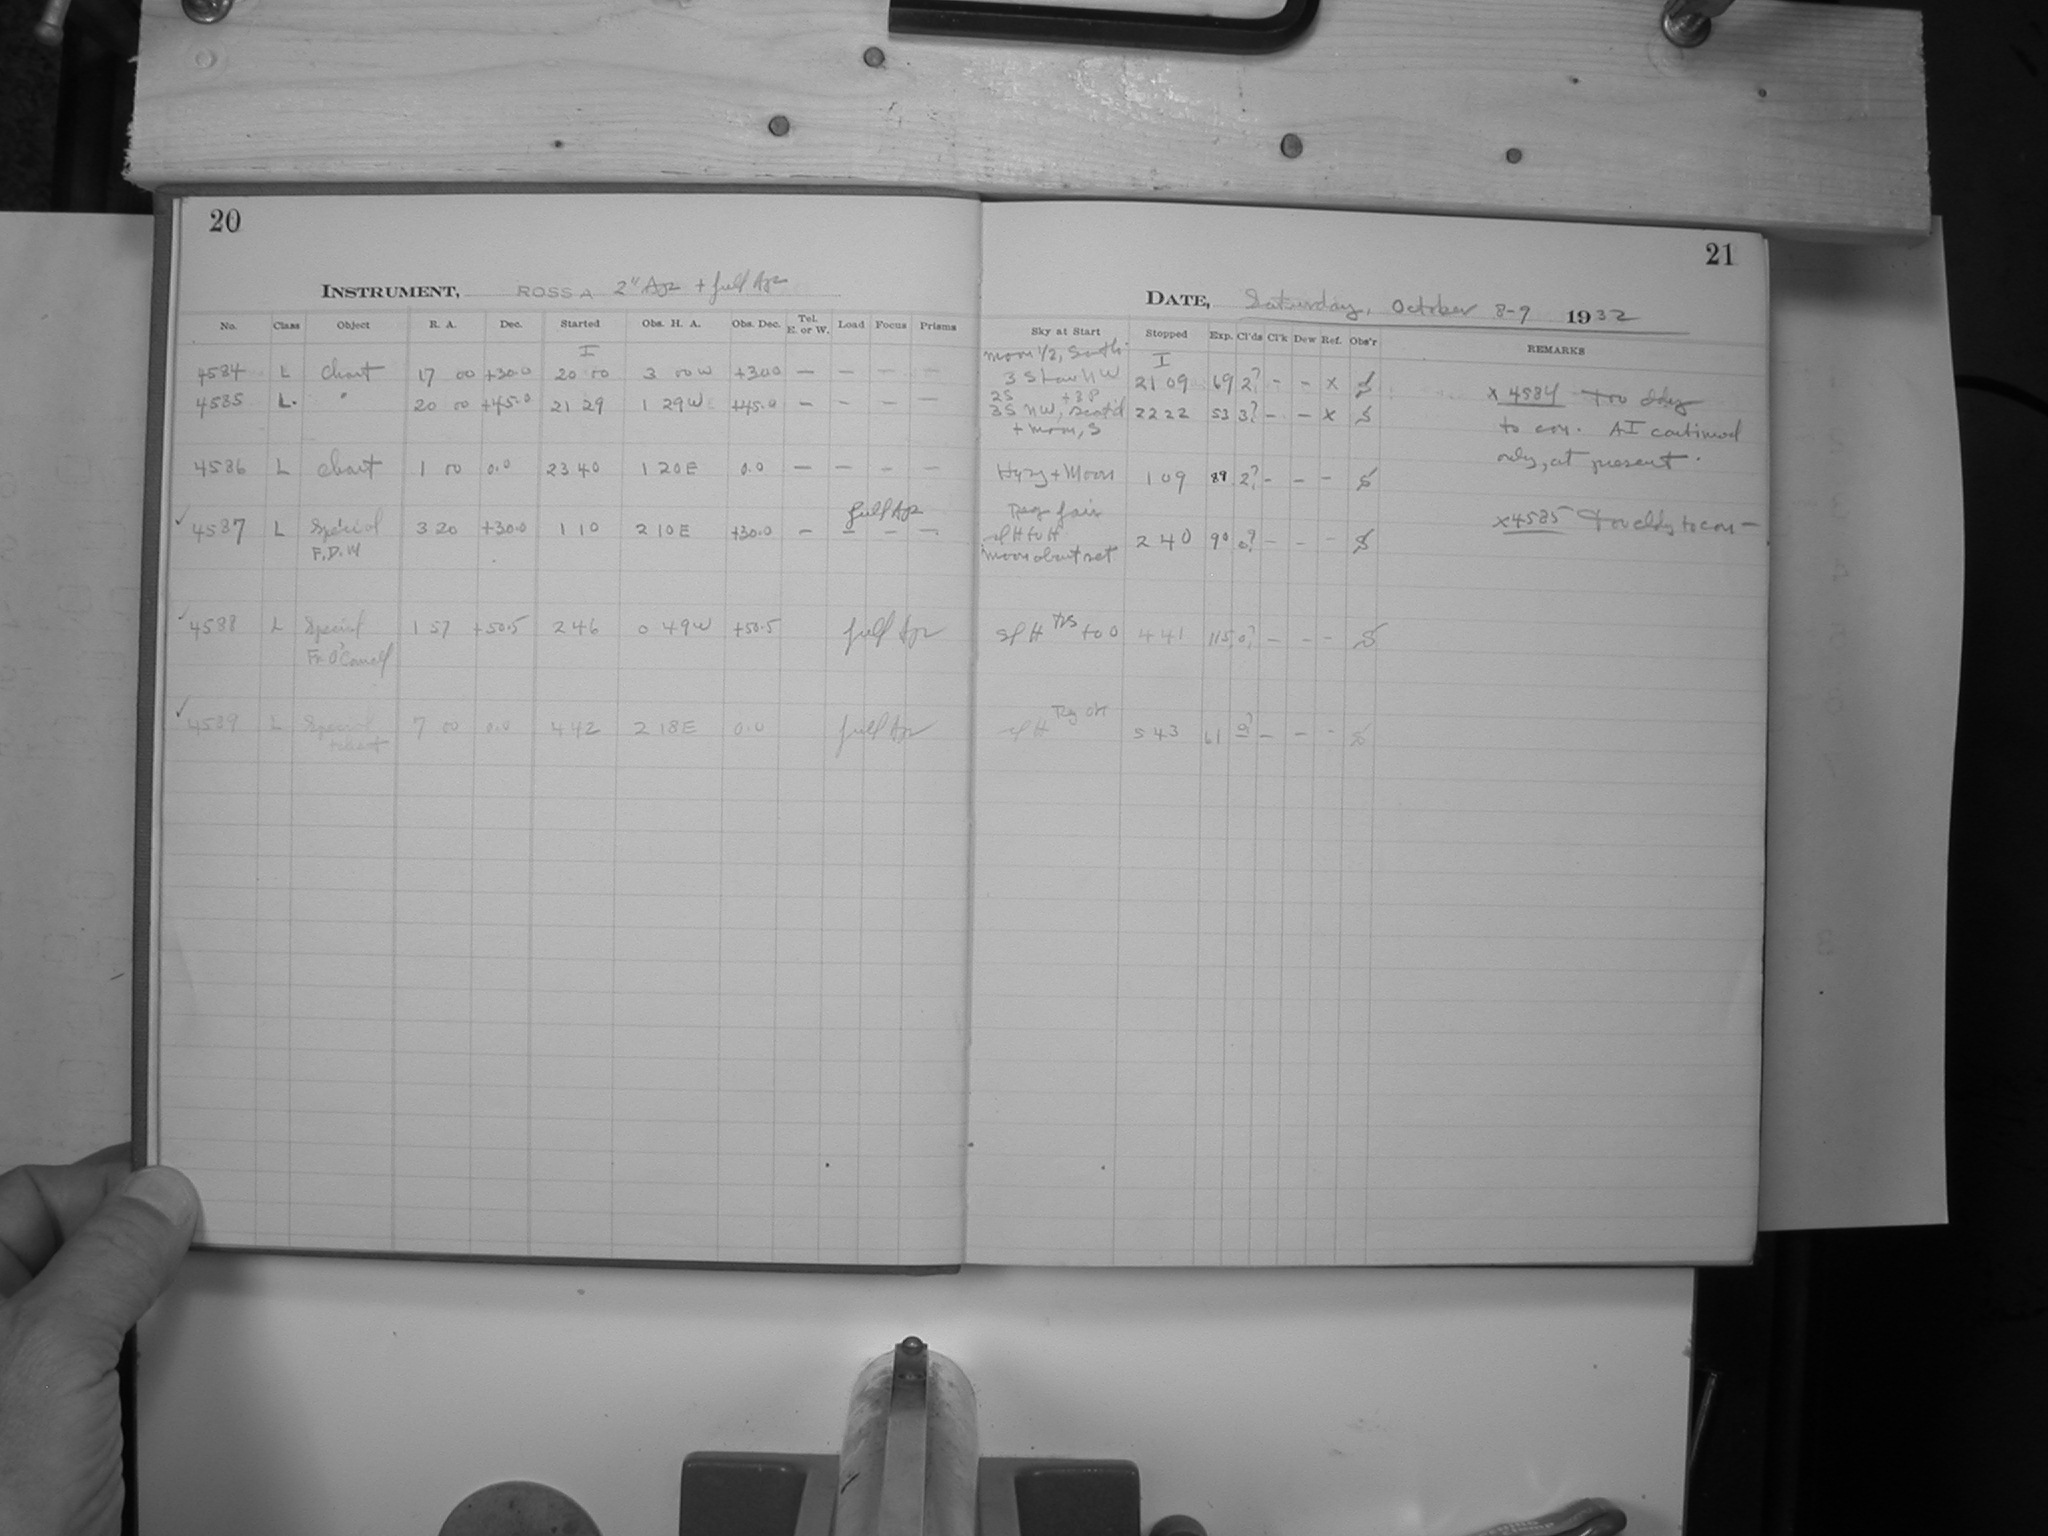 20
INSTRUMENT, ROSS A 2" Apr + full Apr
No. Class Object R. A. Dec. Started Obs. H. A. Obs. Dec. Tel. E. or W. Load Focus Prisms
I
4584 L Chart 17 00 +30.0 20 00 3 00 W +30.0 — — — —
4585 L. " 20 00 +45.0 21 29 1 29 W +45.0 — — — —
4586 L Chart 1 00 0.0 23 40 1 20 E 0.0 — — — —
full Apr
✓ 4587 L Special 3 20 +30.0 1 10 2 10 E +30.0 — — — —
F.D.W
✓ 4588 L Special 1 57 +50.5 2 46 0 49 W +50.5 full Apr
Fr O'Connell
✓ 4589 L Special 7 00 0.0 4 42 2 18 E 0.0 full Apr
21
DATE, Saturday, October 8-9 1932
Sky at Start Stopped Exp. Cl'ds Cl'k Dew Ref. Obs'r REMARKS
Moon 1/2, South I
3 S low NW 21 09 69 2? - - x S
2S +3P
3S NW, Scat'd 22 22 53 3? - - x S
+ moon, S
Hazy + Moon 1 09 89 2? - - - S
Reg fair
sl H to H 2 40 90 0? - - - S
moon about set
sl H to 0 4 41 115 0? - - - S
sl H 5 43 61 0? - - - S
x 4584 Too cldy
to con. AI continued
only, at present.
x 4585 Too cldy to con—